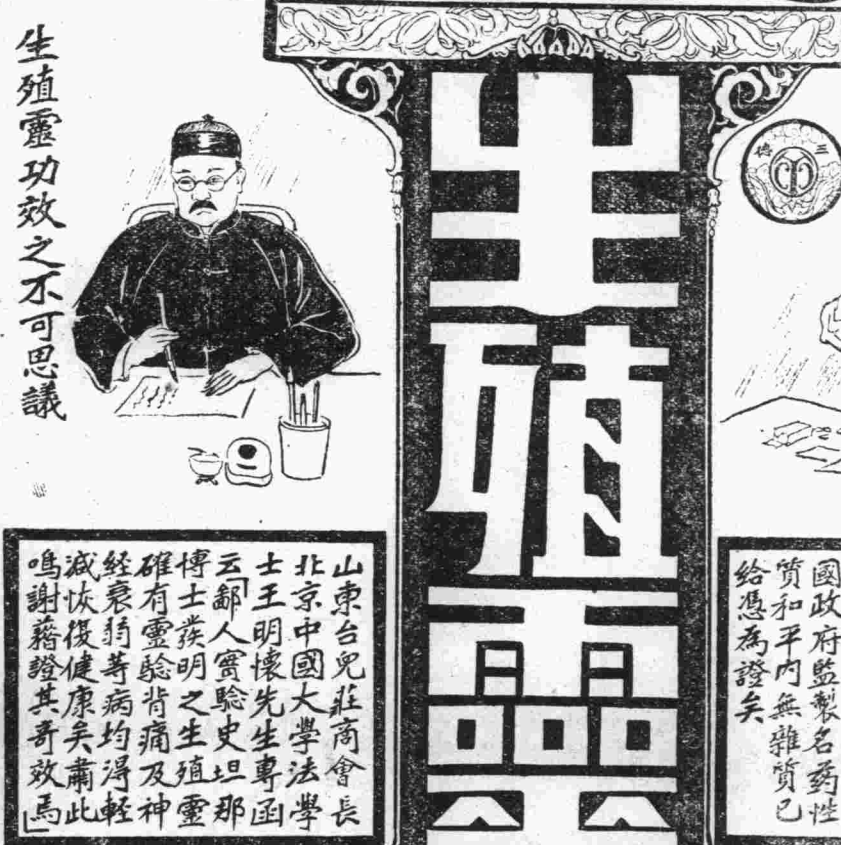 三德
國政府監製名葯性
質和平內無雜質已
給憑為證矣
生殖靈
生殖靈功效之不可思議
山東台兒莊商會長
北京中國大學法學
士王明懷先生專函
云「鄙人實驗史坦那
博士發明之生殖靈
確有靈驗背痛及神
経衰弱等病均淂輕
減恢復健康矣肅此
鳴謝藉證其奇效焉」